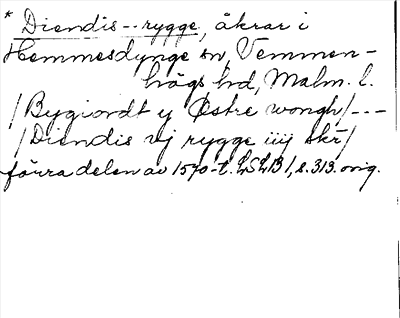 * Diendis--rygge, åkrar i
Hemmesdynge sn, Vemmen-
högs hd, Malm. l.
/Bygiordt y Østre wongh/---
/Diendis vj rygge iiij skr/
förra delen av 1570-t. LSLB 1, s. 313. orig.